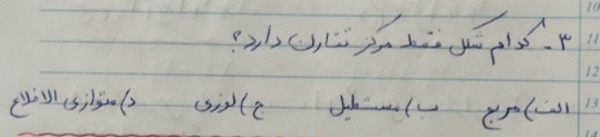 ۳- کدام شکل فقط مرکز تقارن دارد؟
الف) مربع ب) مستطیل ج) لوزی د) متوازی الاضلاع
10
11
12
13
14